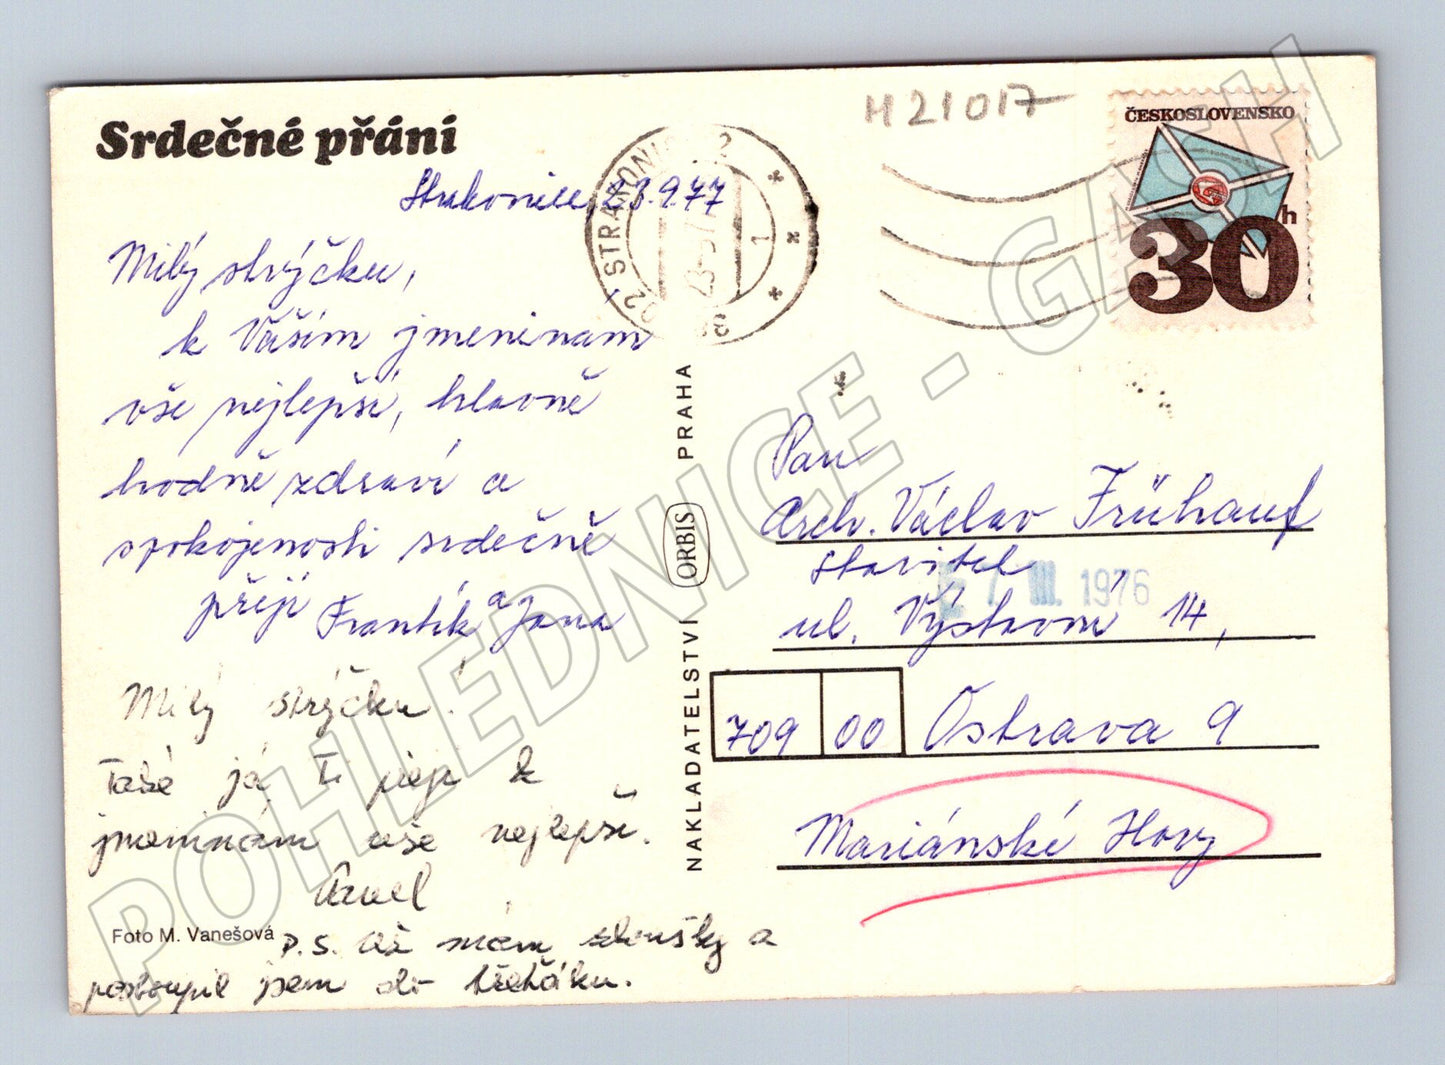 Srdečné přání
Strakonice 23.9.77
Milý strýčku,
k Vašim jmeninam
vše nejlepší, hlavně
hodně zdraví a
spokojenosti srdečně
přejí Frantík a Jana
Milý strýčku!
Také já Ti přeji k
jmeninám vše nejlepší.
Pavel
Foto M. Vanešová
P.S. Už mám zkoušky a
postoupil jsem do třeťáku.
NAKLADATELSTVÍ ORBIS PRAHA
STRAKONICE 2
M21017
ČESKOSLOVENSKO
30 h
Pan
Arch. Václav Frühauf
stavitel
III. 1976
ul. Výstavní 14,
709 00 Ostrava 9
Mariánské Hory
POHLEDNICE - GASH